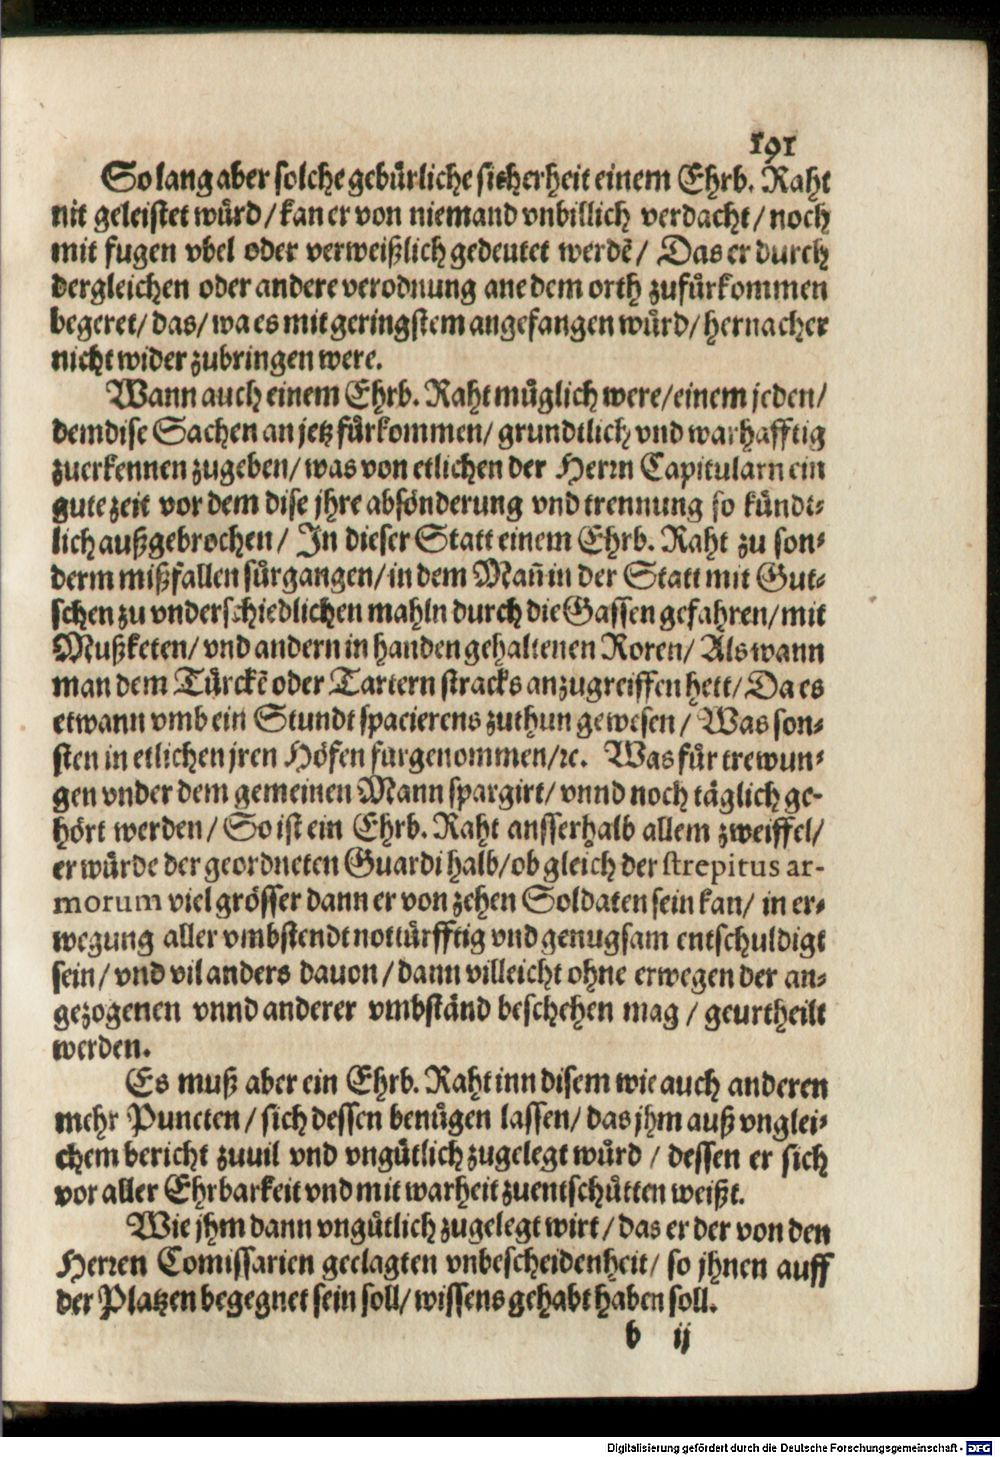 191
So lang aber solche gebürliche sicherheit einem Ehrb. Raht
nit geleistet würd / kan er von niemand vnbillich verdacht / noch
mit fugen vbel oder verweißlich gedeutet werdē / Das er durch
dergleichen oder andere verodnung ane dem orth zufürkommen
begeret / das / wa es mit geringstem angefangen würd / hernacher
nicht wider zubringen were.
Wann auch einem Ehrb. Raht müglich were / einem jeden /
dem dise Sachen an jetz fürkommen / grundtlich vnd warhafftig
zuerkennen zugeben / was von etlichen der Herrn Capitularn ein
gute zeit vor dem dise jhre absönderung vnd trennung so kündt-
lich außgebrochen / In dieser Statt einem Ehrb. Raht zu son-
derm mißfallen fürgangen / in dem Mañ in der Statt mit Gut-
schen zu vnderschiedlichen mahln durch die Gassen gefahren / mit
Mußketen / vnd andern in handen gehaltenen Roren / Als wann
man dem Türckē oder Tartern stracks anzugreiffen hett / Da es
etwann vmb ein Stundt spacierens zuthun gewesen / Was son-
sten in etlichen jren Höfen furgenommen / ꝛc. Was für trewun-
gen vnder dem gemeinen Mann spargirt / vnnd noch täglich ge-
hört werden / So ist ein Ehrb. Raht ausserhalb allem zweiffel /
er würde der geordneten Guardi halb / ob gleich der strepitus ar-
morum viel grösser dann er von zehen Soldaten sein kan / in er-
wegung aller vmbstendt nottürfftig vnd genugsam entschuldigt
sein / vnd vil anders dauon / dann villeicht ohne erwegen der an-
gezogenen vnnd anderer vmbständ beschehen mag / geurtheilt
werden.
Es muß aber ein Ehrb. Raht inn disem wie auch anderen
mehr Puncten / sich dessen benügen lassen / das jhm auß vnglei-
chem bericht zuuil vnd vngütlich zugelegt würd / dessen er sich
vor aller Ehrbarkeit vnd mit warheit zuentschütten weißt.
Wie jhm dann vngütlich zugelegt wirt / das er der von den
Herren Comissarien geclagten vnbescheidenheit / so jhnen auff
der Platzen begegnet sein soll / wissens gehabt haben soll.
b ij
Digitalisierung gefördert durch die Deutsche Forschungsgemeinschaft - DFG